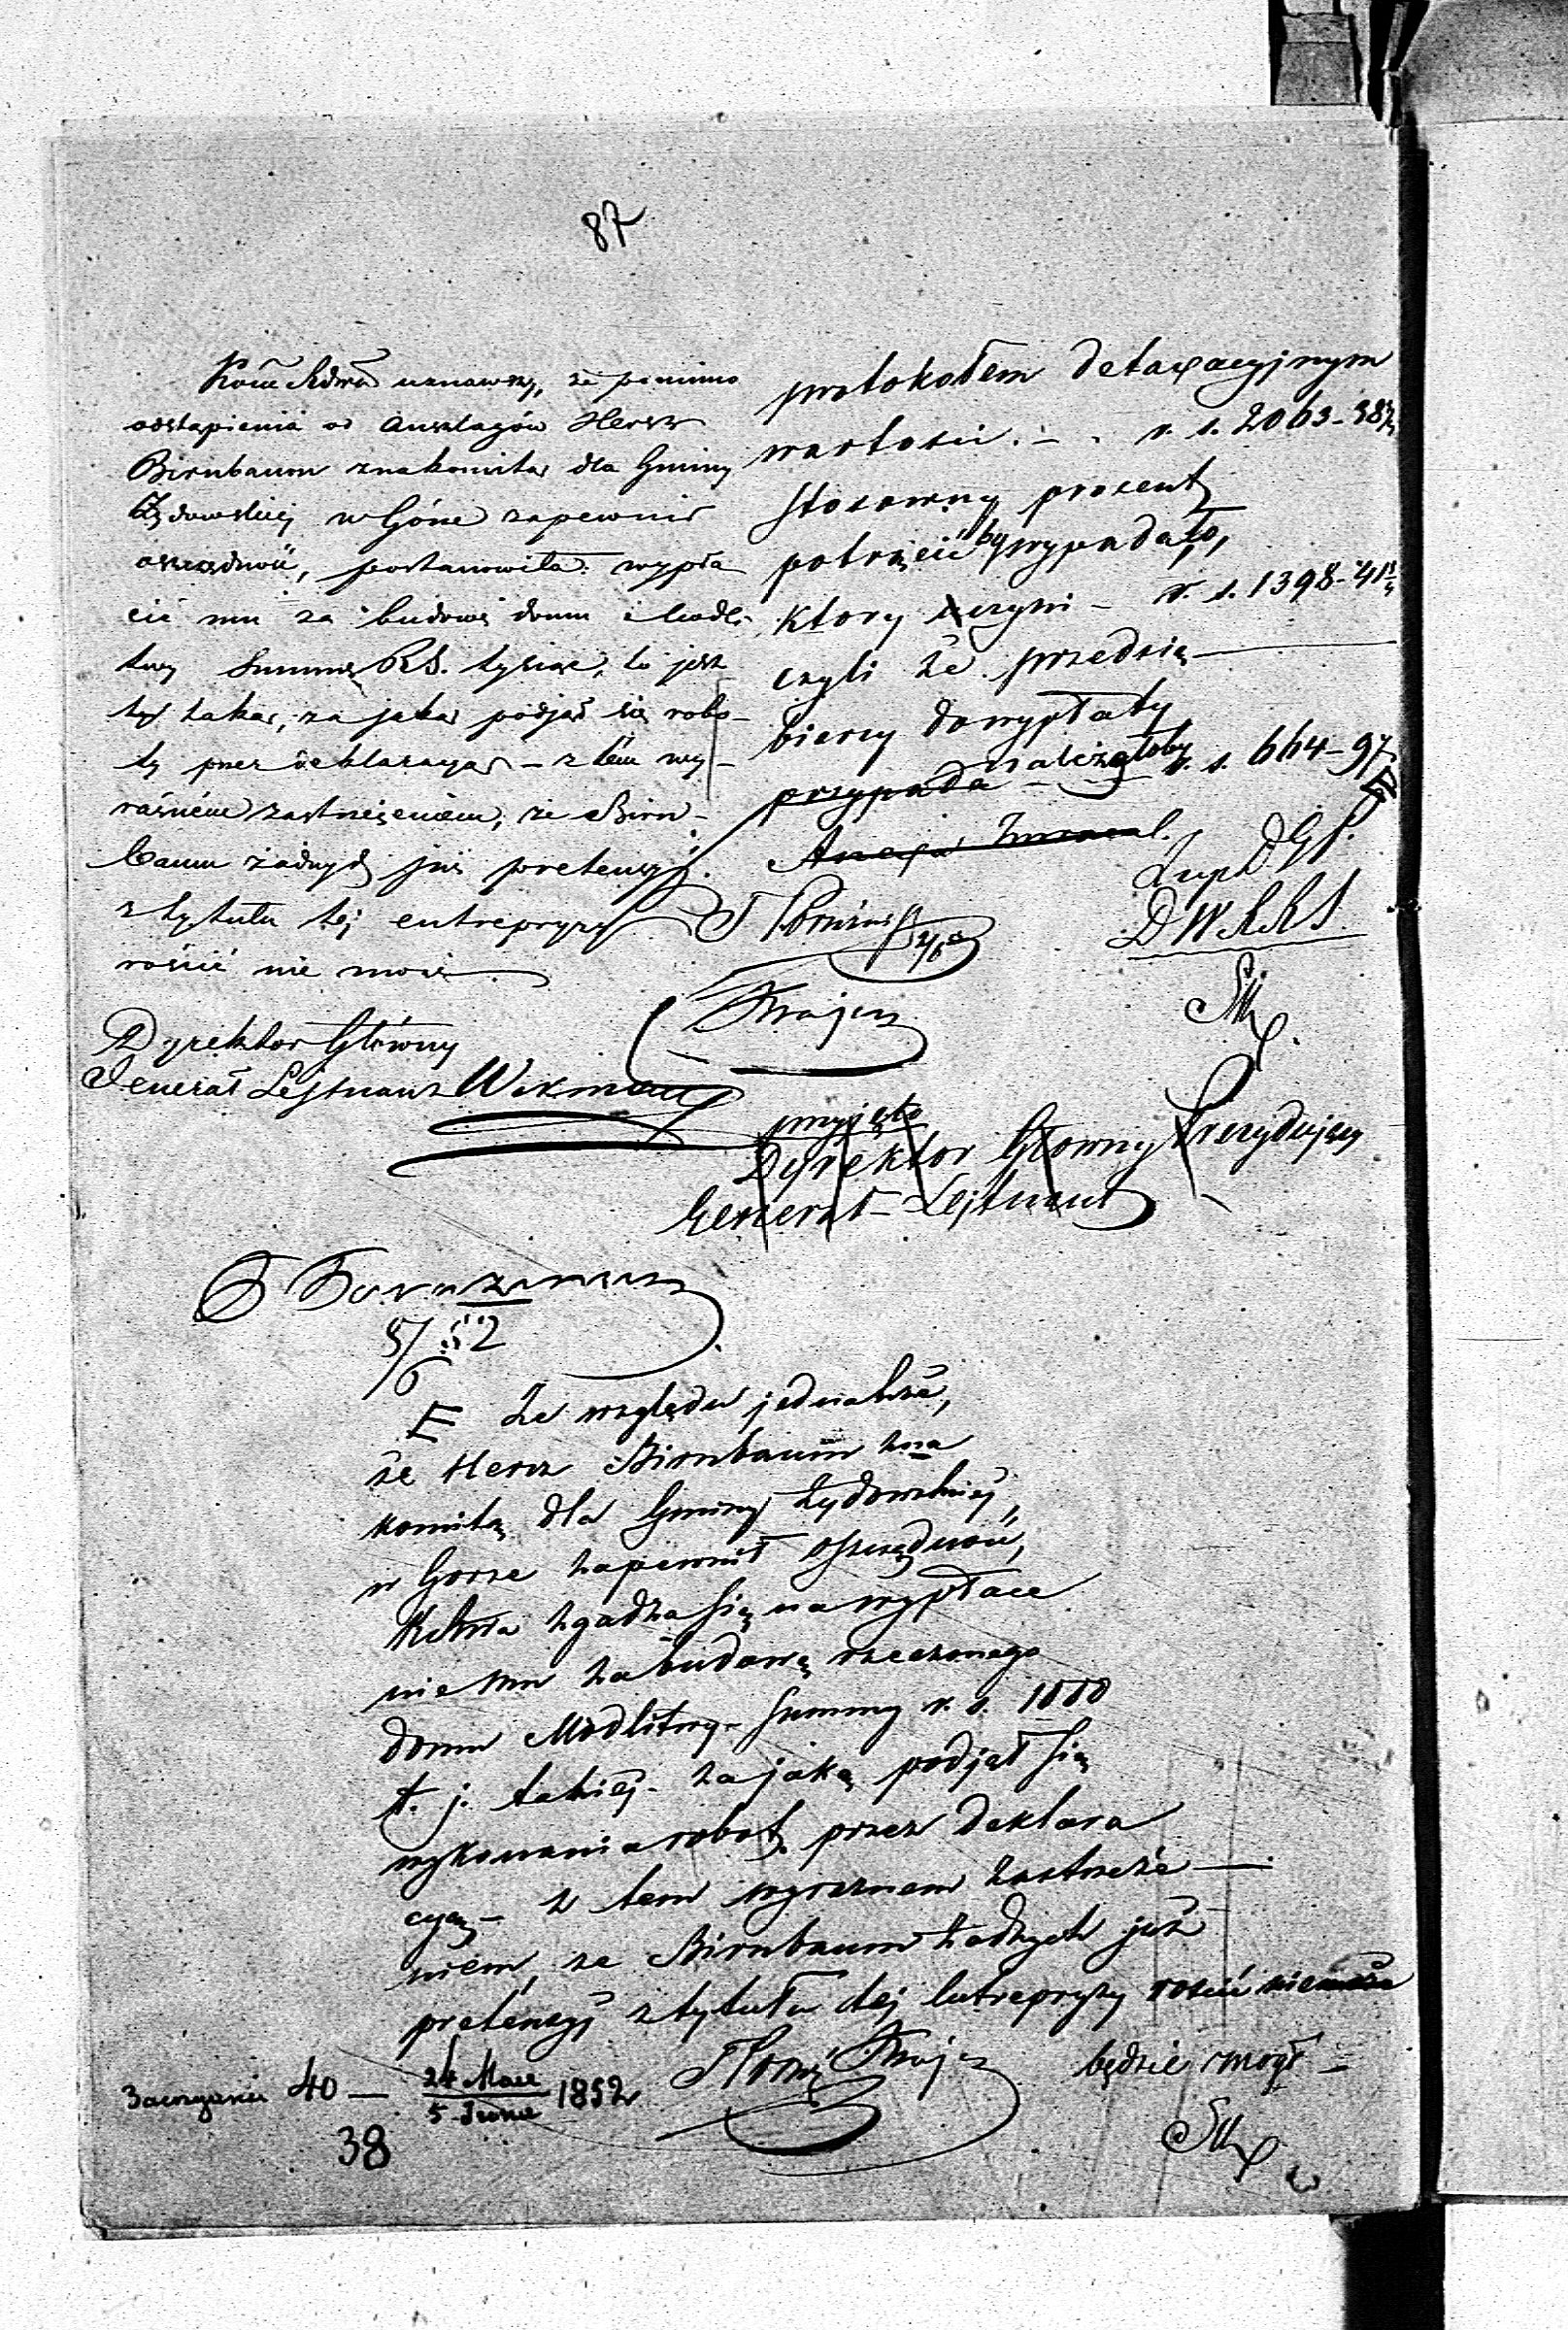 87
uznawszy, że pomimo
odstąpienia od Anszlagów Hersz
Birnbaum znakomitą dla Gminy
Żydowskiej w Górze zapewnił
oszczędność, postanowiła wypła
cić mu za budowę domu Modli
twy Summę RS. tysiąc, to jest
tyle taką, za jaką podjął się robo-
ty przez deklaracyą – z tém wy-
raźném zastrzeżeniem, że Birn-
baum żadnych już pretensyj
z tytułu tej entrepryzy
rościć nie może
Dyrektor Główny
Jenerał Lejtnant Wikman
protokołem detaxacyjnym
wartości . – . r. s. 2063-38
Stosowny procent
potrącić by wypadało,
ktory czyni – r. s. 1398-41
czyli że przedsię
biercy do wypłaty
przypada należałoby r. s. 664-97
DWRKS
przyjęto
Dyrektor Głowny Prezydujący
Generał-Lejtnant
5/6 52
Ze względu jednakże,
że Hersz Birnbaum zna
komitą dla Gminy Żydowskiej
w Gorze zapewnił oszczędność,
zgadza się na wypłace
nie mu za budowę rzeczonego
domu Modlitwy – Summy r. s. 1000
t. j. takiéj – za jaką podjął się
wykonania robot przez deklara
cyą – z tem wyraznem zastrzeże –
niem, ze Birnbaum żadnych już
pretensyj z tytułu tej Entrepryzy rościć niemoże
będzie mogł –
40 – 24 Maia / 5 Iunia 1852
38